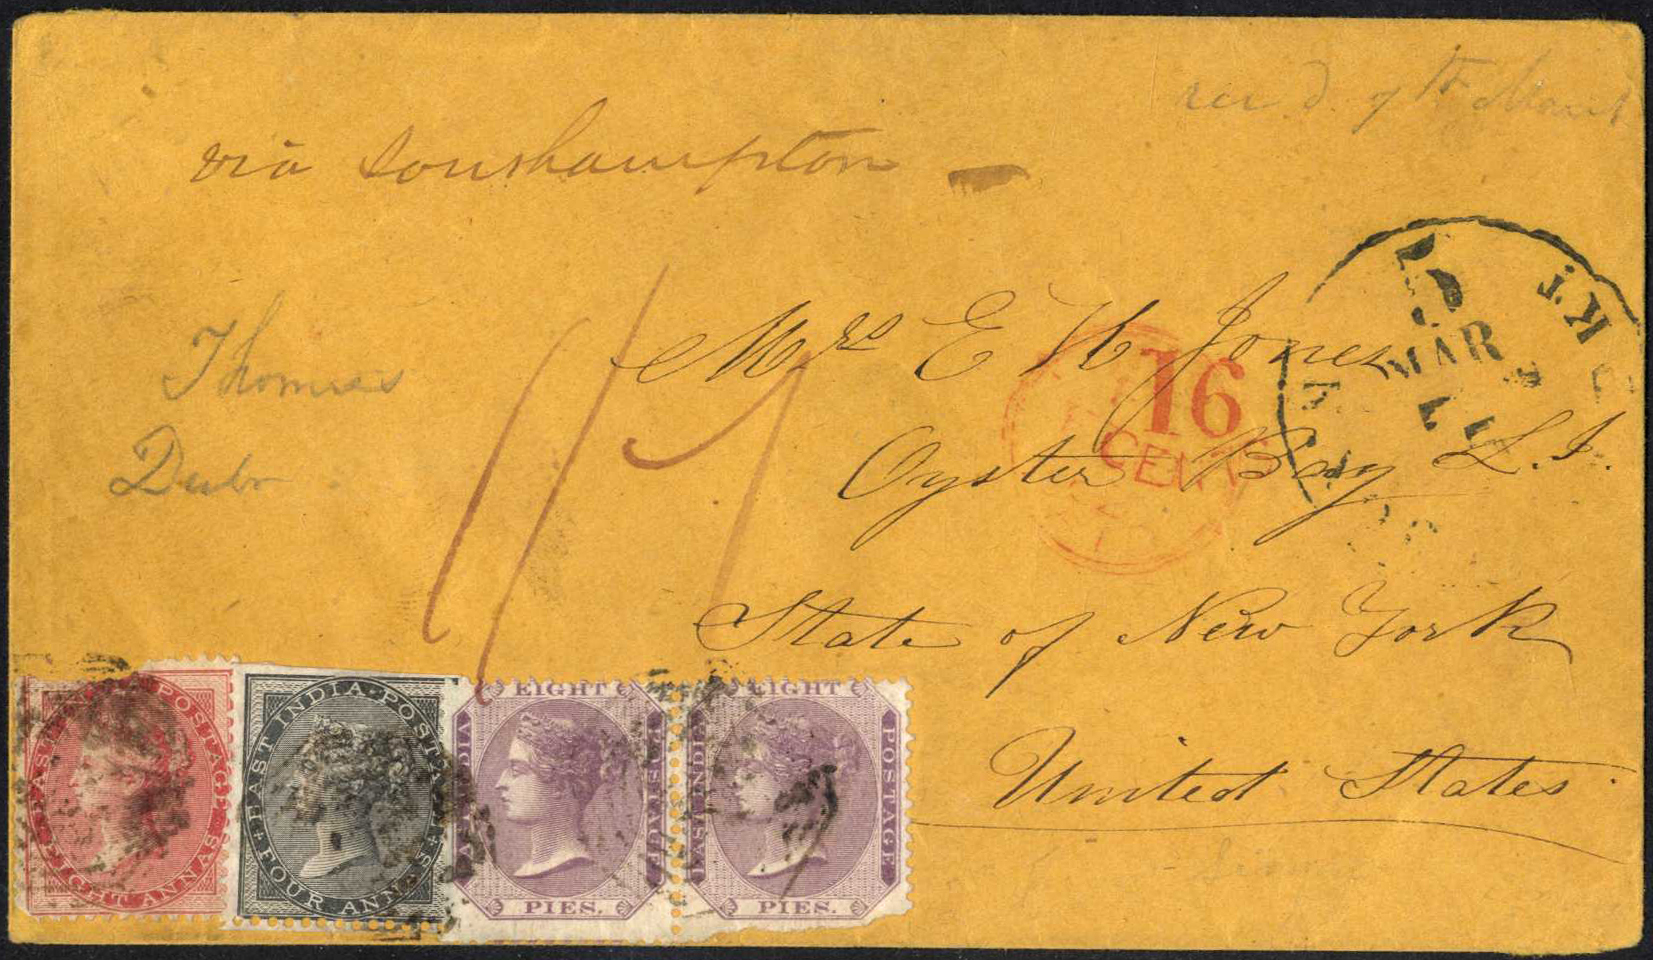 rec'd 9th March
via Southampton
Mrs E H Jones
Oyster Bay L.I.
State of New York
United States
Thomas
16
CENTS
MAR
EAST INDIA POSTAGE
EIGHT ANNAS
EAST INDIA POSTAGE
FOUR ANNAS
EIGHT
EAST INDIA
POSTAGE
PIES.
EIGHT
EAST INDIA
POSTAGE
PIES.